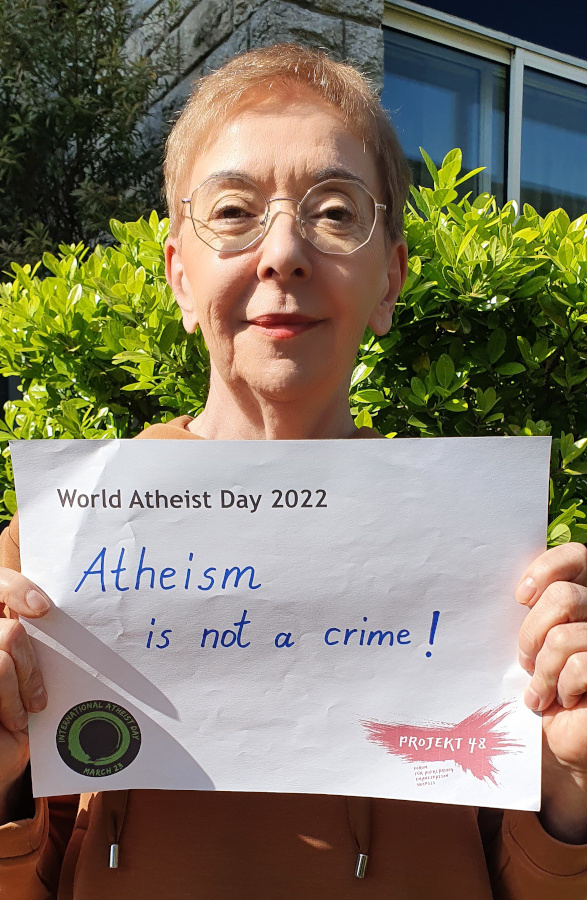 World Atheist Day 2022
Atheism
is not a crime!
INTERNATIONAL ATHEIST DAY
MARCH 23
PROJEKT 48
FORUM